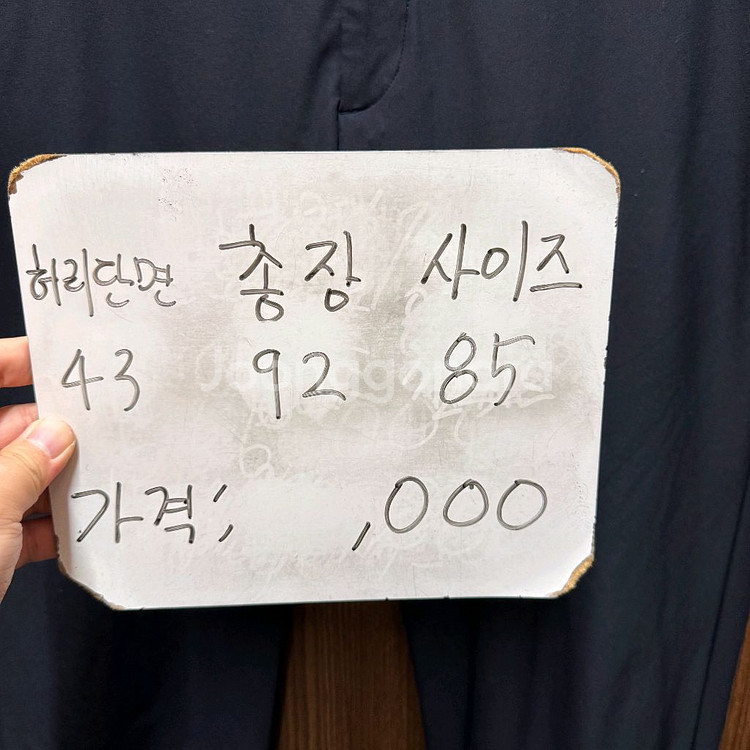 허리단면 총장 사이즈
43 92 85
가격; ,000